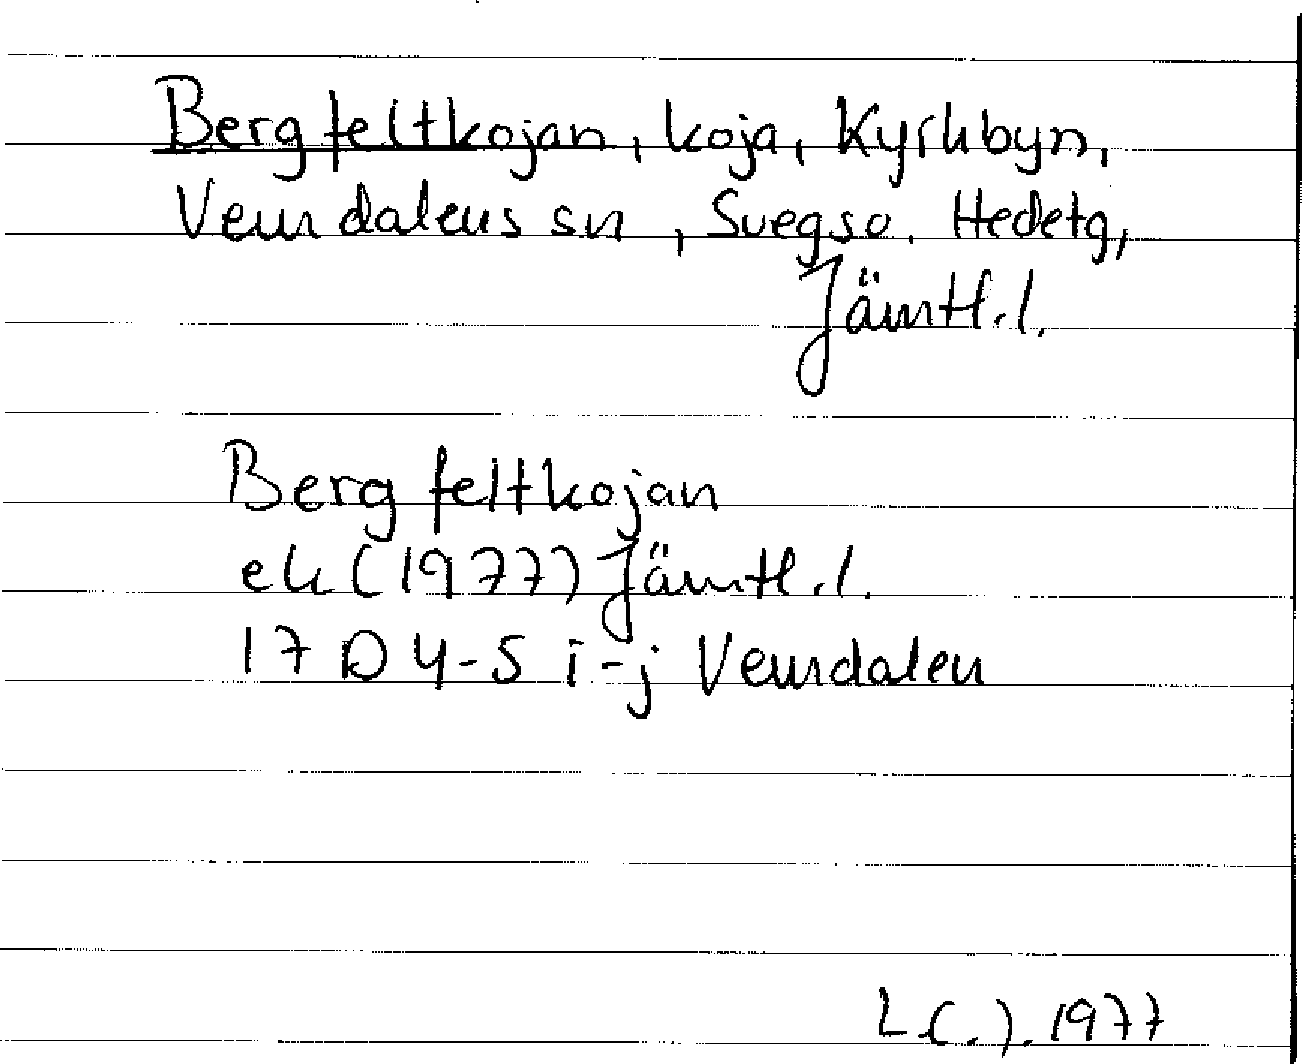 Bergfeltkojan, koja, Kyrkbyn,
Vemdalens sn, Svegs o. Hedetg,
Jämtl. l.
Bergfeltkojan
ek (1977) Jämtl. l.
17 D 4-5 i-j Vemdalen
1977